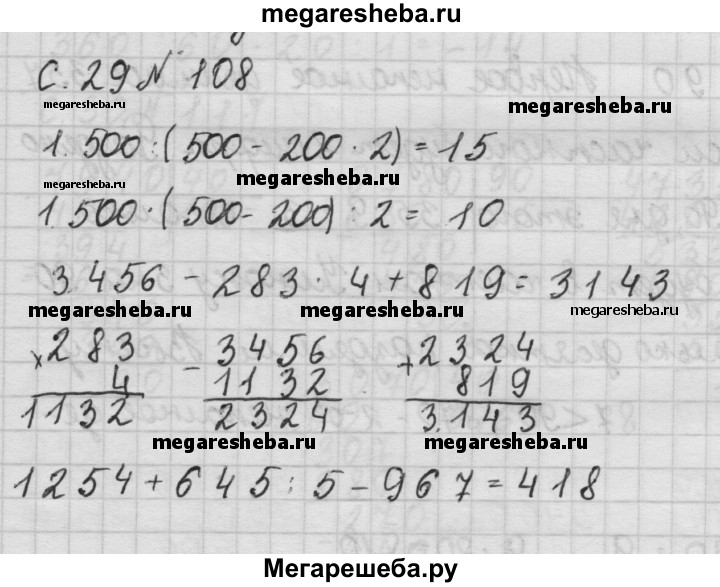 megaresheba.ru
С. 29 № 108
megaresheba.ru
megaresheba.ru
1.500:(500 - 200 · 2) = 15
megaresheba.ru
megaresheba.ru
1.500:(500 - 200) · 2 = 10
3456 - 283 · 4 + 819 = 3143
megaresheba.ru megaresheba.ru megaresheba.ru
× 283 - 3456 + 2324
4 1132 819
1132 2324 3.143
megaresheba.ru megaresheba.ru
1254 + 645 : 5 - 967 = 418
Мегарешеба.ру